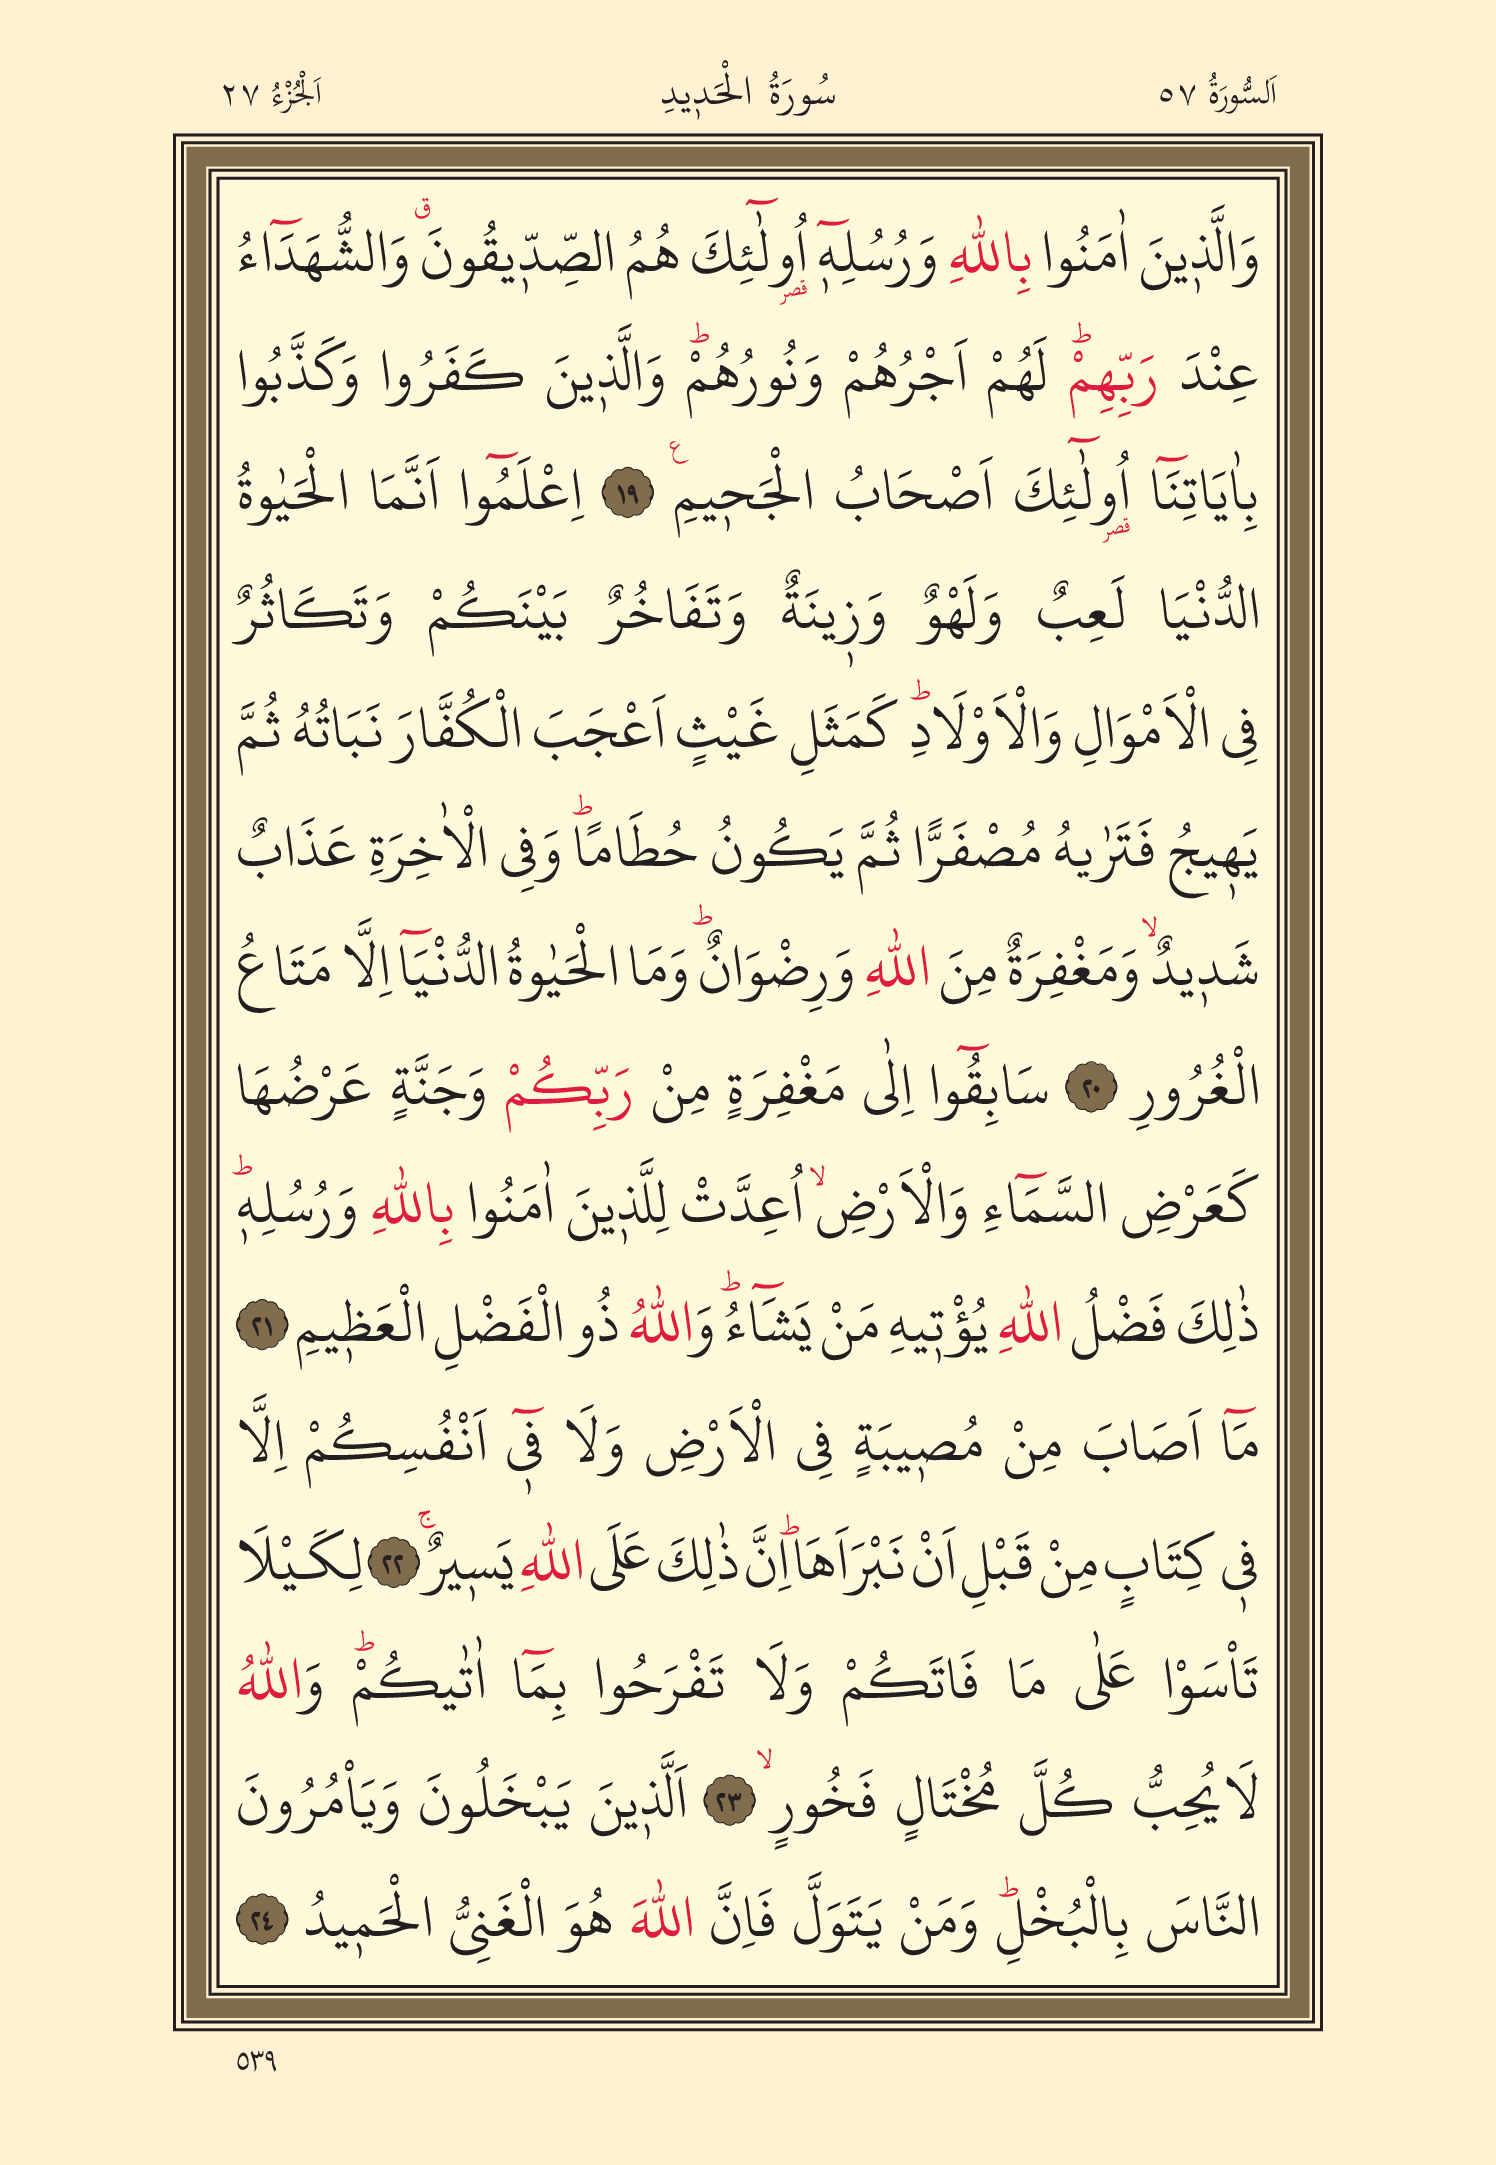 اَلسُّورَةُ ٥٧ سُورَةُ الْحَد۪يدِ اَلْجُزْءُ ٢٧
وَالَّذ۪ينَ اٰمَنُوا بِاللّٰهِ وَرُسُلِه۪ٓ اُو۬لٰٓئِكَ هُمُ الصِّدّ۪يقُونَۗ وَالشُّهَدَٓاءُ
عِنْدَ رَبِّهِمْۜ لَهُمْ اَجْرُهُمْ وَنُورُهُمْۜ وَالَّذ۪ينَ كَفَرُوا وَكَذَّبُوا
بِاٰيَاتِنَٓا اُو۬لٰٓئِكَ اَصْحَابُ الْجَح۪يمِ۟ ﴿١٩﴾ اِعْلَمُٓوا اَنَّمَا الْحَيٰوةُ
الدُّنْيَا لَعِبٌ وَلَهْوٌ وَز۪ينَةٌ وَتَفَاخُرٌ بَيْنَكُمْ وَتَكَاثُرٌ
فِي الْاَمْوَالِ وَالْاَوْلَادِۜ كَمَثَلِ غَيْثٍ اَعْجَبَ الْكُفَّارَ نَبَاتُهُ ثُمَّ
يَه۪يجُ فَتَرٰيهُ مُصْفَرًّا ثُمَّ يَكُونُ حُطَامًاۜ وَفِي الْاٰخِرَةِ عَذَابٌ
شَد۪يدٌۙ وَمَغْفِرَةٌ مِنَ اللّٰهِ وَرِضْوَانٌۜ وَمَا الْحَيٰوةُ الدُّنْيَٓا اِلَّا مَتَاعُ
الْغُرُورِ ﴿٢٠﴾ سَابِقُٓوا اِلٰى مَغْفِرَةٍ مِنْ رَبِّكُمْ وَجَنَّةٍ عَرْضُهَا
كَعَرْضِ السَّمَٓاءِ وَالْاَرْضِۙ اُعِدَّتْ لِلَّذ۪ينَ اٰمَنُوا بِاللّٰهِ وَرُسُلِه۪ۜ
ذٰلِكَ فَضْلُ اللّٰهِ يُؤْت۪يهِ مَنْ يَشَٓاءُۜ وَاللّٰهُ ذُو الْفَضْلِ الْعَظ۪يمِ ﴿٢١﴾
مَٓا اَصَابَ مِنْ مُص۪يبَةٍ فِي الْاَرْضِ وَلَا ف۪ٓي اَنْفُسِكُمْ اِلَّا
ف۪ي كِتَابٍ مِنْ قَبْلِ اَنْ نَبْرَاَهَاۜ اِنَّ ذٰلِكَ عَلَى اللّٰهِ يَس۪يرٌۚ ﴿٢٢﴾ لِكَيْلَا
تَاْسَوْا عَلٰى مَا فَاتَكُمْ وَلَا تَفْرَحُوا بِمَٓا اٰتٰيكُمْۜ وَاللّٰهُ
لَا يُحِبُّ كُلَّ مُخْتَالٍ فَخُورٍۙ ﴿٢٣﴾ اَلَّذ۪ينَ يَبْخَلُونَ وَيَاْمُرُونَ
النَّاسَ بِالْبُخْلِۜ وَمَنْ يَتَوَلَّ فَاِنَّ اللّٰهَ هُوَ الْغَنِيُّ الْحَم۪يدُ ﴿٢٤﴾
٥٣٩